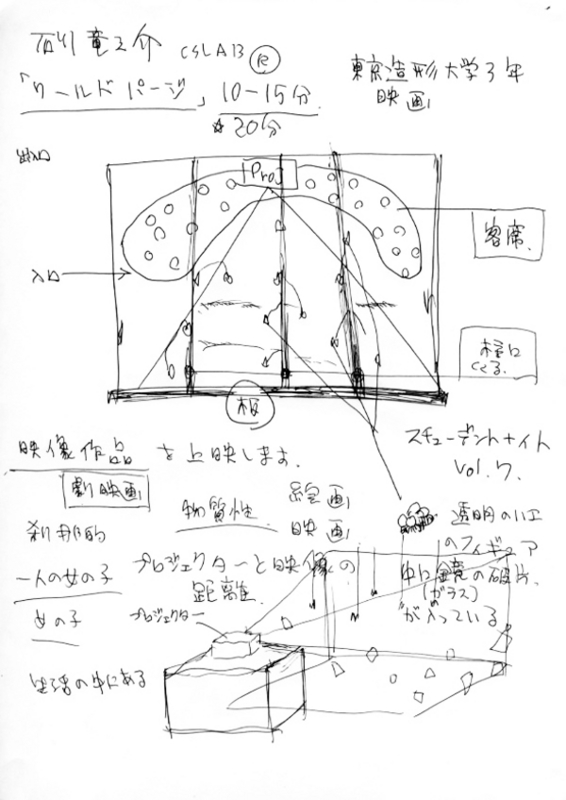 石川 竜之介 CSLAB Ⓡ
「ワールド パージ」10-15分
☆20分
東京造形大学3年
映画
出入口
Pro
客席
入口
板
柱に
くくる。
映像作品 を上映します。
劇映画
スチューデントナイト
Vol.7.
刹那的
物質性
絵画
映画
一人の女の子
女の子
プロジェクターと映像の
距離
プロジェクター
透明のハエ
のフィギュア
中に鏡の破片
(ガラス)
が入っている
生活の中にある